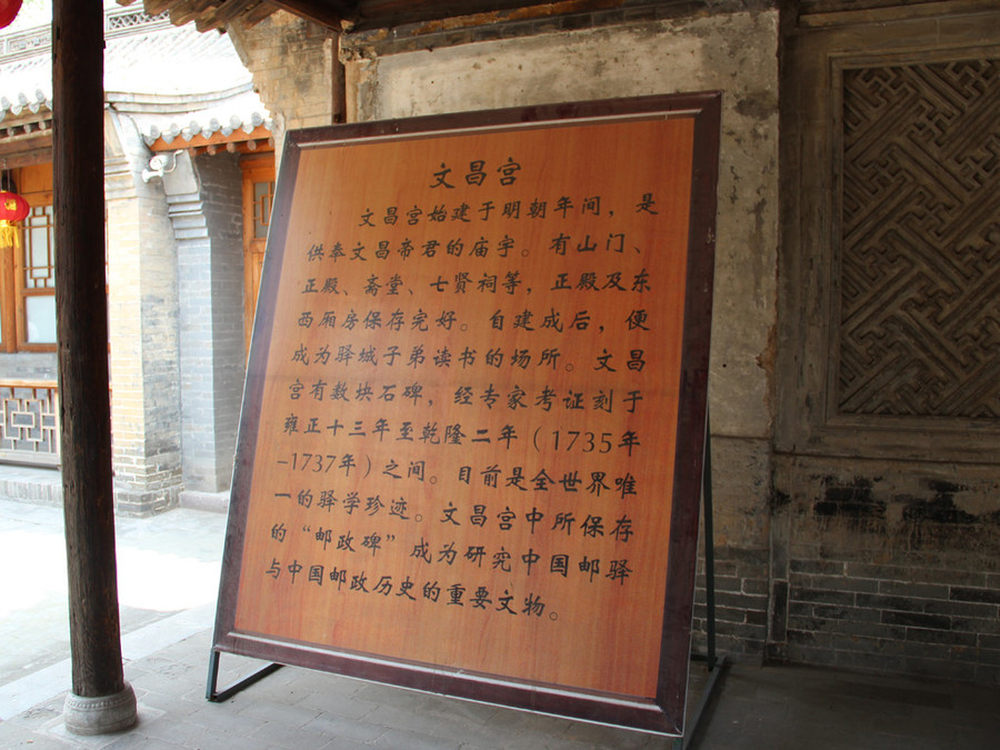 文昌宫
文昌宫始建于明朝年间，是
供奉文昌帝君的庙宇。有山门、
正殿、斋堂、七贤祠等，正殿及东
西厢房保存完好。自建成后，便
成为驿城子弟读书的场所。文昌
宫有数块石碑，经专家考证刻于
雍正十三年至乾隆二年（1735年
-1737年）之间。目前是全世界唯
一的驿学珍迹。文昌宫中所保存
的“邮政碑”成为研究中国邮驿
与中国邮政历史的重要文物。